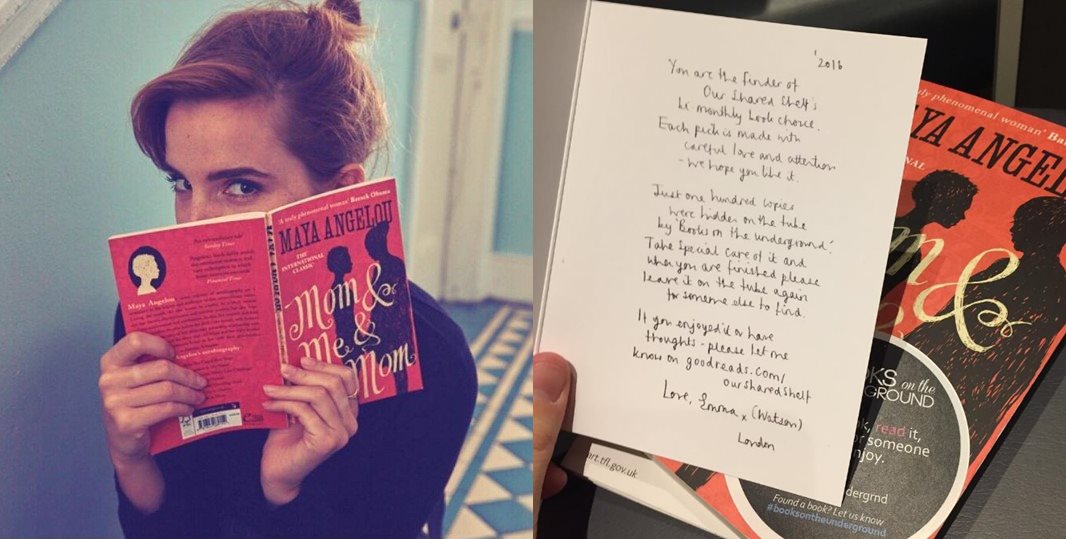 'A truly phenomenal woman' Barack Obama
MAYA ANGELOU
THE
INTERNATIONAL
CLASSIC
Mom &
Me &
Mom
Sunday Times
Financial Times
Maya Angelou
Angelou's autobiography
'2016
You are the finder of
Our Shared Shelf's
bi monthly book choice.
Each pick is made with
careful love and attention
- we hope you like it.
Just one hundred copies
were hidden on the tube
by 'Books on the underground'.
Take special care of it and
when you are finished please
leave it on the tube again
for someone else to find.
If you enjoyed it or have
thoughts - please let me
know on goodreads.com/
oursharedshelf
Love, Emma x (Watson)
London
truly phenomenal woman' Ba
AYA ANGEL
NAL
m &
OKS on the
RGROUND
k, read it,
or someone
njoy.
dergrnd
Found a book? Let us know
#booksontheunderground
art.tfl.gov.uk